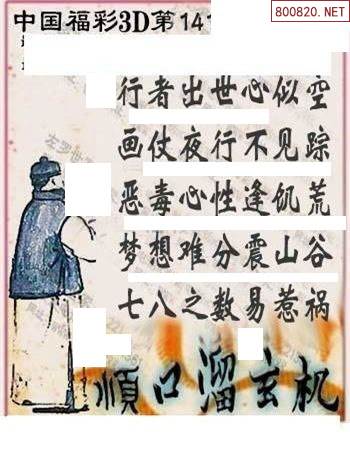 800820.NET
中国福彩3D第14
行者出世心似空
画仗夜行不见踪
恶毒心性逢饥荒
梦想难分震山谷
七八之数易惹祸
顺口溜玄机